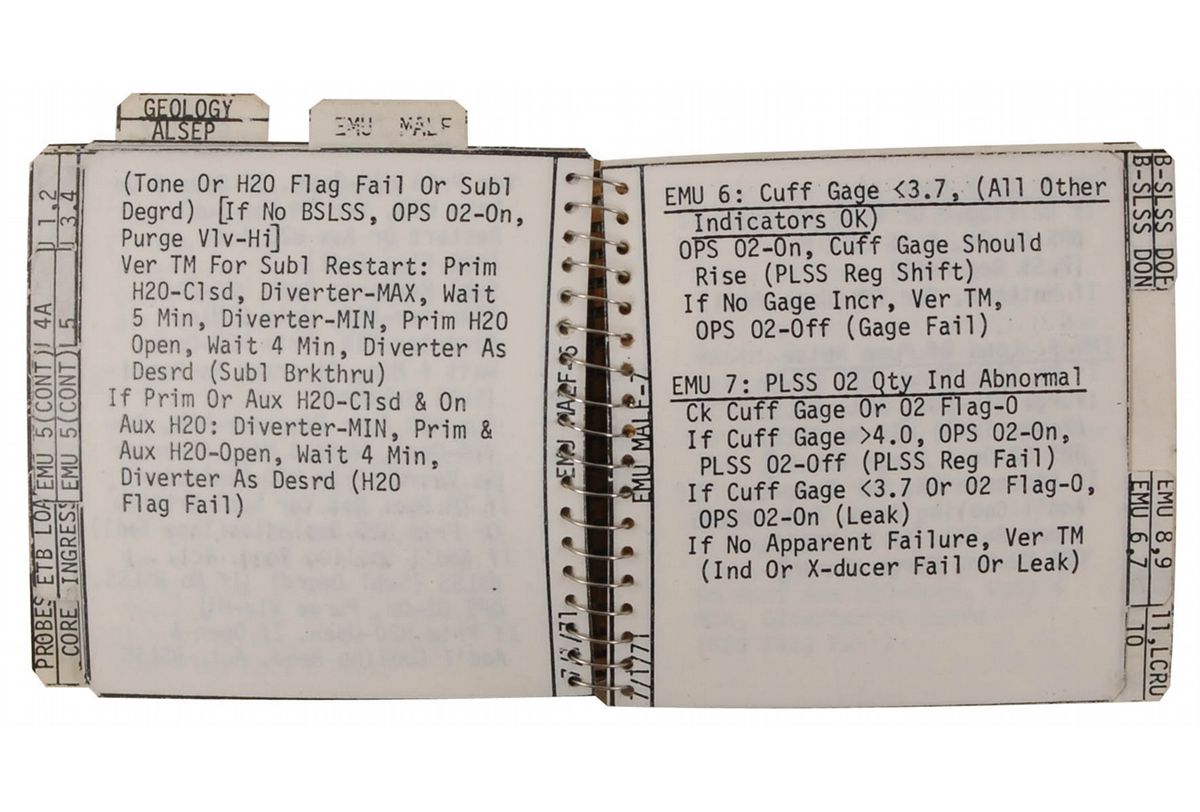 GEOLOGY
ALSEP
EMU MALF
1,2
3,4
EMU 5(CONT) 4A
EMU 5(CONT) 5
PROBES ETB LOAD
CORE INGRESS
(Tone Or H2O Flag Fail Or Subl
Degrd) [If No BSLSS, OPS O2-On,
Purge Vlv-Hi]
Ver TM For Subl Restart: Prim
H2O-Clsd, Diverter-MAX, Wait
5 Min, Diverter-MIN, Prim H2O
Open, Wait 4 Min, Diverter As
Desrd (Subl Brkthru)
If Prim Or Aux H2O-Clsd & On
Aux H2O: Diverter-MIN, Prim &
Aux H2O-Open, Wait 4 Min,
Diverter As Desrd (H2O
Flag Fail)
EMU MALF-6
7/1/71
EMU MALF-
7/1/71
EMU 6: Cuff Gage <3.7, (All Other
Indicators OK)
OPS O2-On, Cuff Gage Should
Rise (PLSS Reg Shift)
If No Gage Incr, Ver TM,
OPS O2-Off (Gage Fail)
EMU 7: PLSS O2 Qty Ind Abnormal
Ck Cuff Gage Or O2 Flag-O
If Cuff Gage >4.0, OPS O2-On,
PLSS O2-Off (PLSS Reg Fail)
If Cuff Gage <3.7 Or O2 Flag-O,
OPS O2-On (Leak)
If No Apparent Failure, Ver TM
(Ind Or X-ducer Fail Or Leak)
B-SLSS DOF
B-SLSS DON
EMU 8,9
EMU 6,7
11,LCRU
10